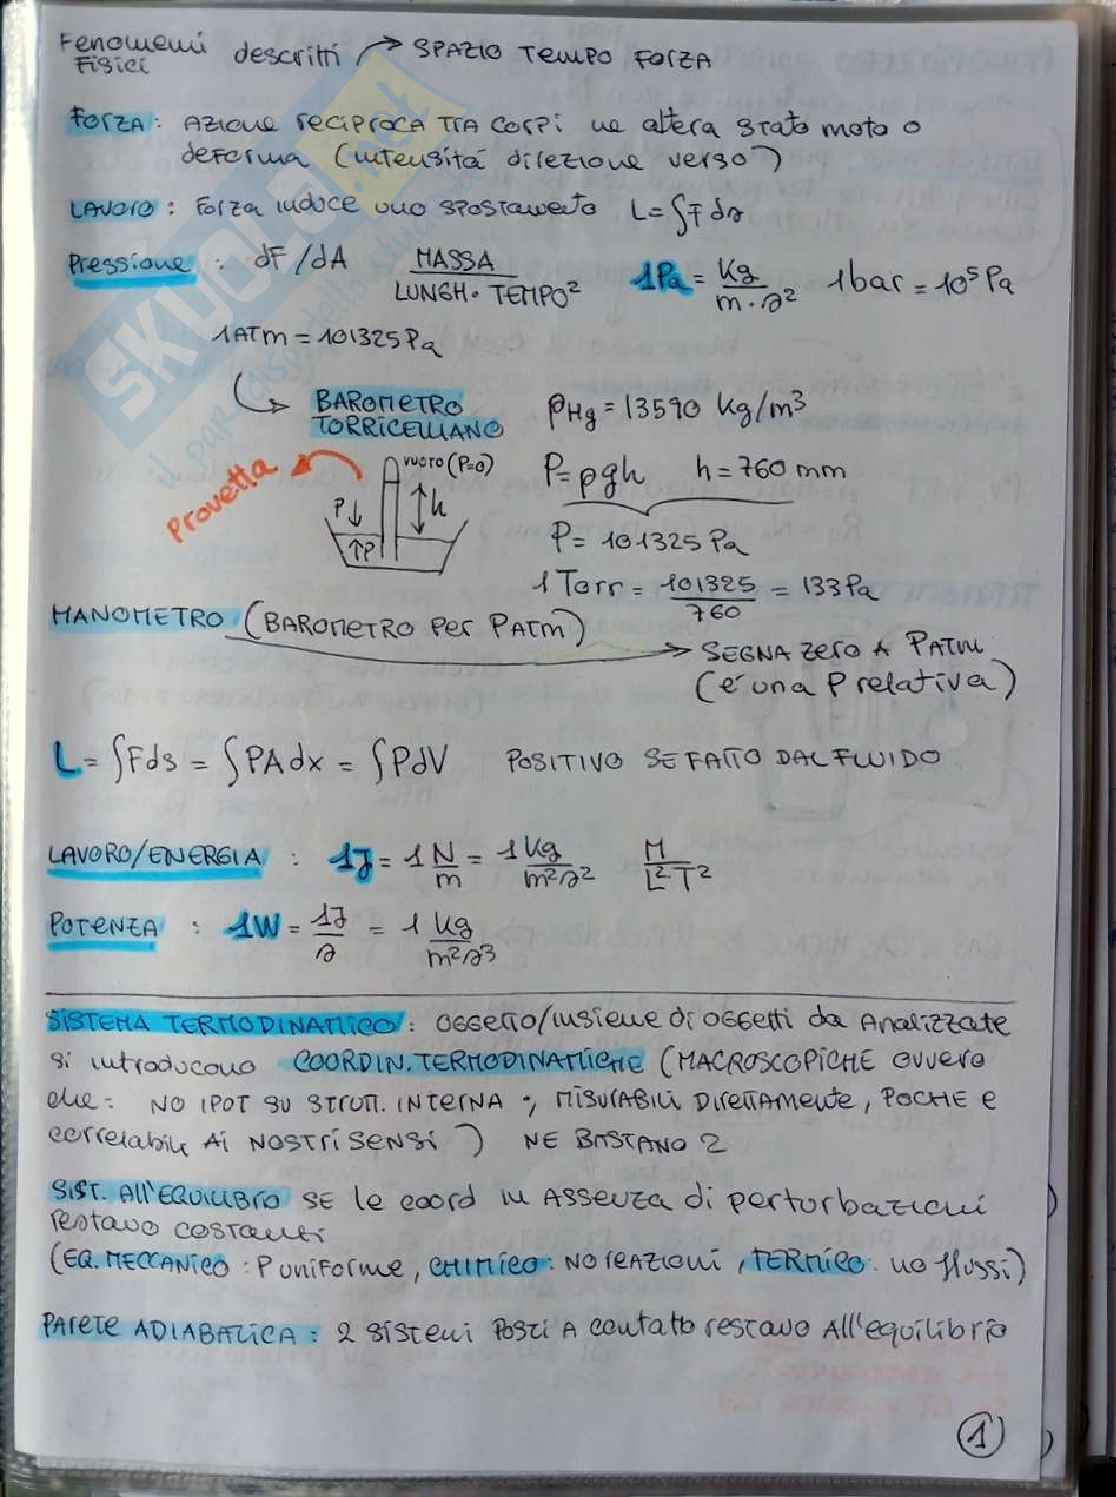 Fenomeni Fisici descritti → SPAZIO TEMPO FORZA
FORZA: AZIONE RECIPROCA TRA CORPI ne altera stato moto o
deforma (intensità direzione verso)
LAVORO: Forza induce uno spostamento L=∫F ds
Pressione: dF/dA MASSA/LUNGH·TEMPO² 1Pa = Kg/m·s² 1bar = 10⁵Pa
1ATm = 101325Pa
BAROMETRO TORRICELLIANO ρHg = 13590 Kg/m³
Provetta
vuoto (P=0) P=ρgh h=760 mm
P↓ h
↑P P= 101325 Pa
1 Torr = 101325/760 = 133Pa
MANOMETRO (BAROMETRO Per PATM)
→ SEGNA Zero A PATM
(é una P relativa)
L = ∫Fds = ∫PAdx = ∫PdV POSITIVO SE FATTO DAL FLUIDO
LAVORO/ENERGIA : 1J = 1 N/m = 1 Kg/m²s² M/L²T²
POTENZA : 1W = 1J/s = 1 Kg/m²s³
SISTEMA TERMODINAMICO: OGGETTO/insieme di OGGETTI da Analizzate
si introducono COORDIN. TERMODINAMICHE (MACROSCOPICHE ovvero
che: NO IPOT SU STRUTT. INTERNA ; MISURABILI DIRETTAMENTE, POCHE e
correlabili AI NOSTRI SENSI) NE BASTANO 2
SIST. All'EQUILIBRO SE le coord in ASSENZA di perturbazioni
restano costanti
(EQ. MECCANICO: P uniforme, CHIMICO: NO REAZIONI, TERMICO: no flussi)
PARETE ADIABATICA: 2 sistemi POSTI A contatto restano All'equilibrio
1
SKUOLA.net